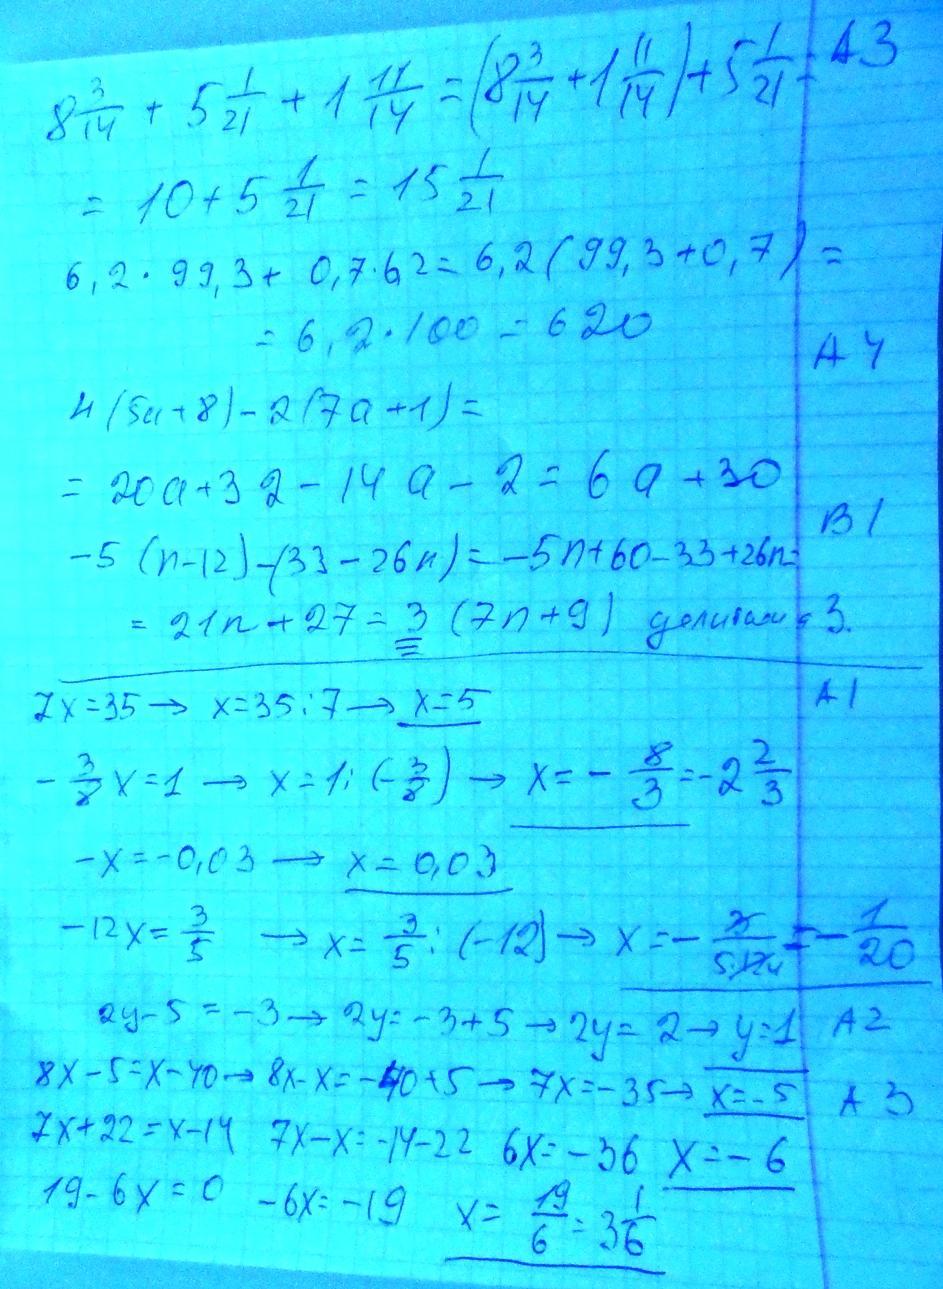 8 3/14 + 5 1/21 + 1 11/14 = (8 3/14 + 1 11/14) + 5 1/21 = A3
= 10 + 5 1/21 = 15 1/21
6,2 · 99,3 + 0,7 · 62 = 6,2 (99,3 + 0,7) =
= 6,2 · 100 = 620
A4
4 (5a + 8) - 2 (7a + 1) =
= 20a + 32 - 14a - 2 = 6a + 30
B1
-5 (n - 12) - (33 - 26n) = -5n + 60 - 33 + 26n =
= 21n + 27 = 3 (7n + 9) 3.
7x = 35 → x = 35 : 7 → x = 5 A1
- 3/8 x = 1 → x = 1 : (- 3/8) → x = - 8/3 = -2 2/3
-x = -0,03 → x = 0,03
-12x = 3/5 → x = 3/5 : (-12) → x = - 3/5·12 4 = - 1/20
2y - 5 = -3 → 2y = -3 + 5 → 2y = 2 → y = 1 A2
8x - 5 = x - 40 → 8x - x = -40 + 5 → 7x = -35 → x = -5 A3
7x + 22 = x - 14 7x - x = -14 - 22 6x = -36 x = -6
19 - 6x = 0 -6x = -19 x = 19/6 = 3 1/6